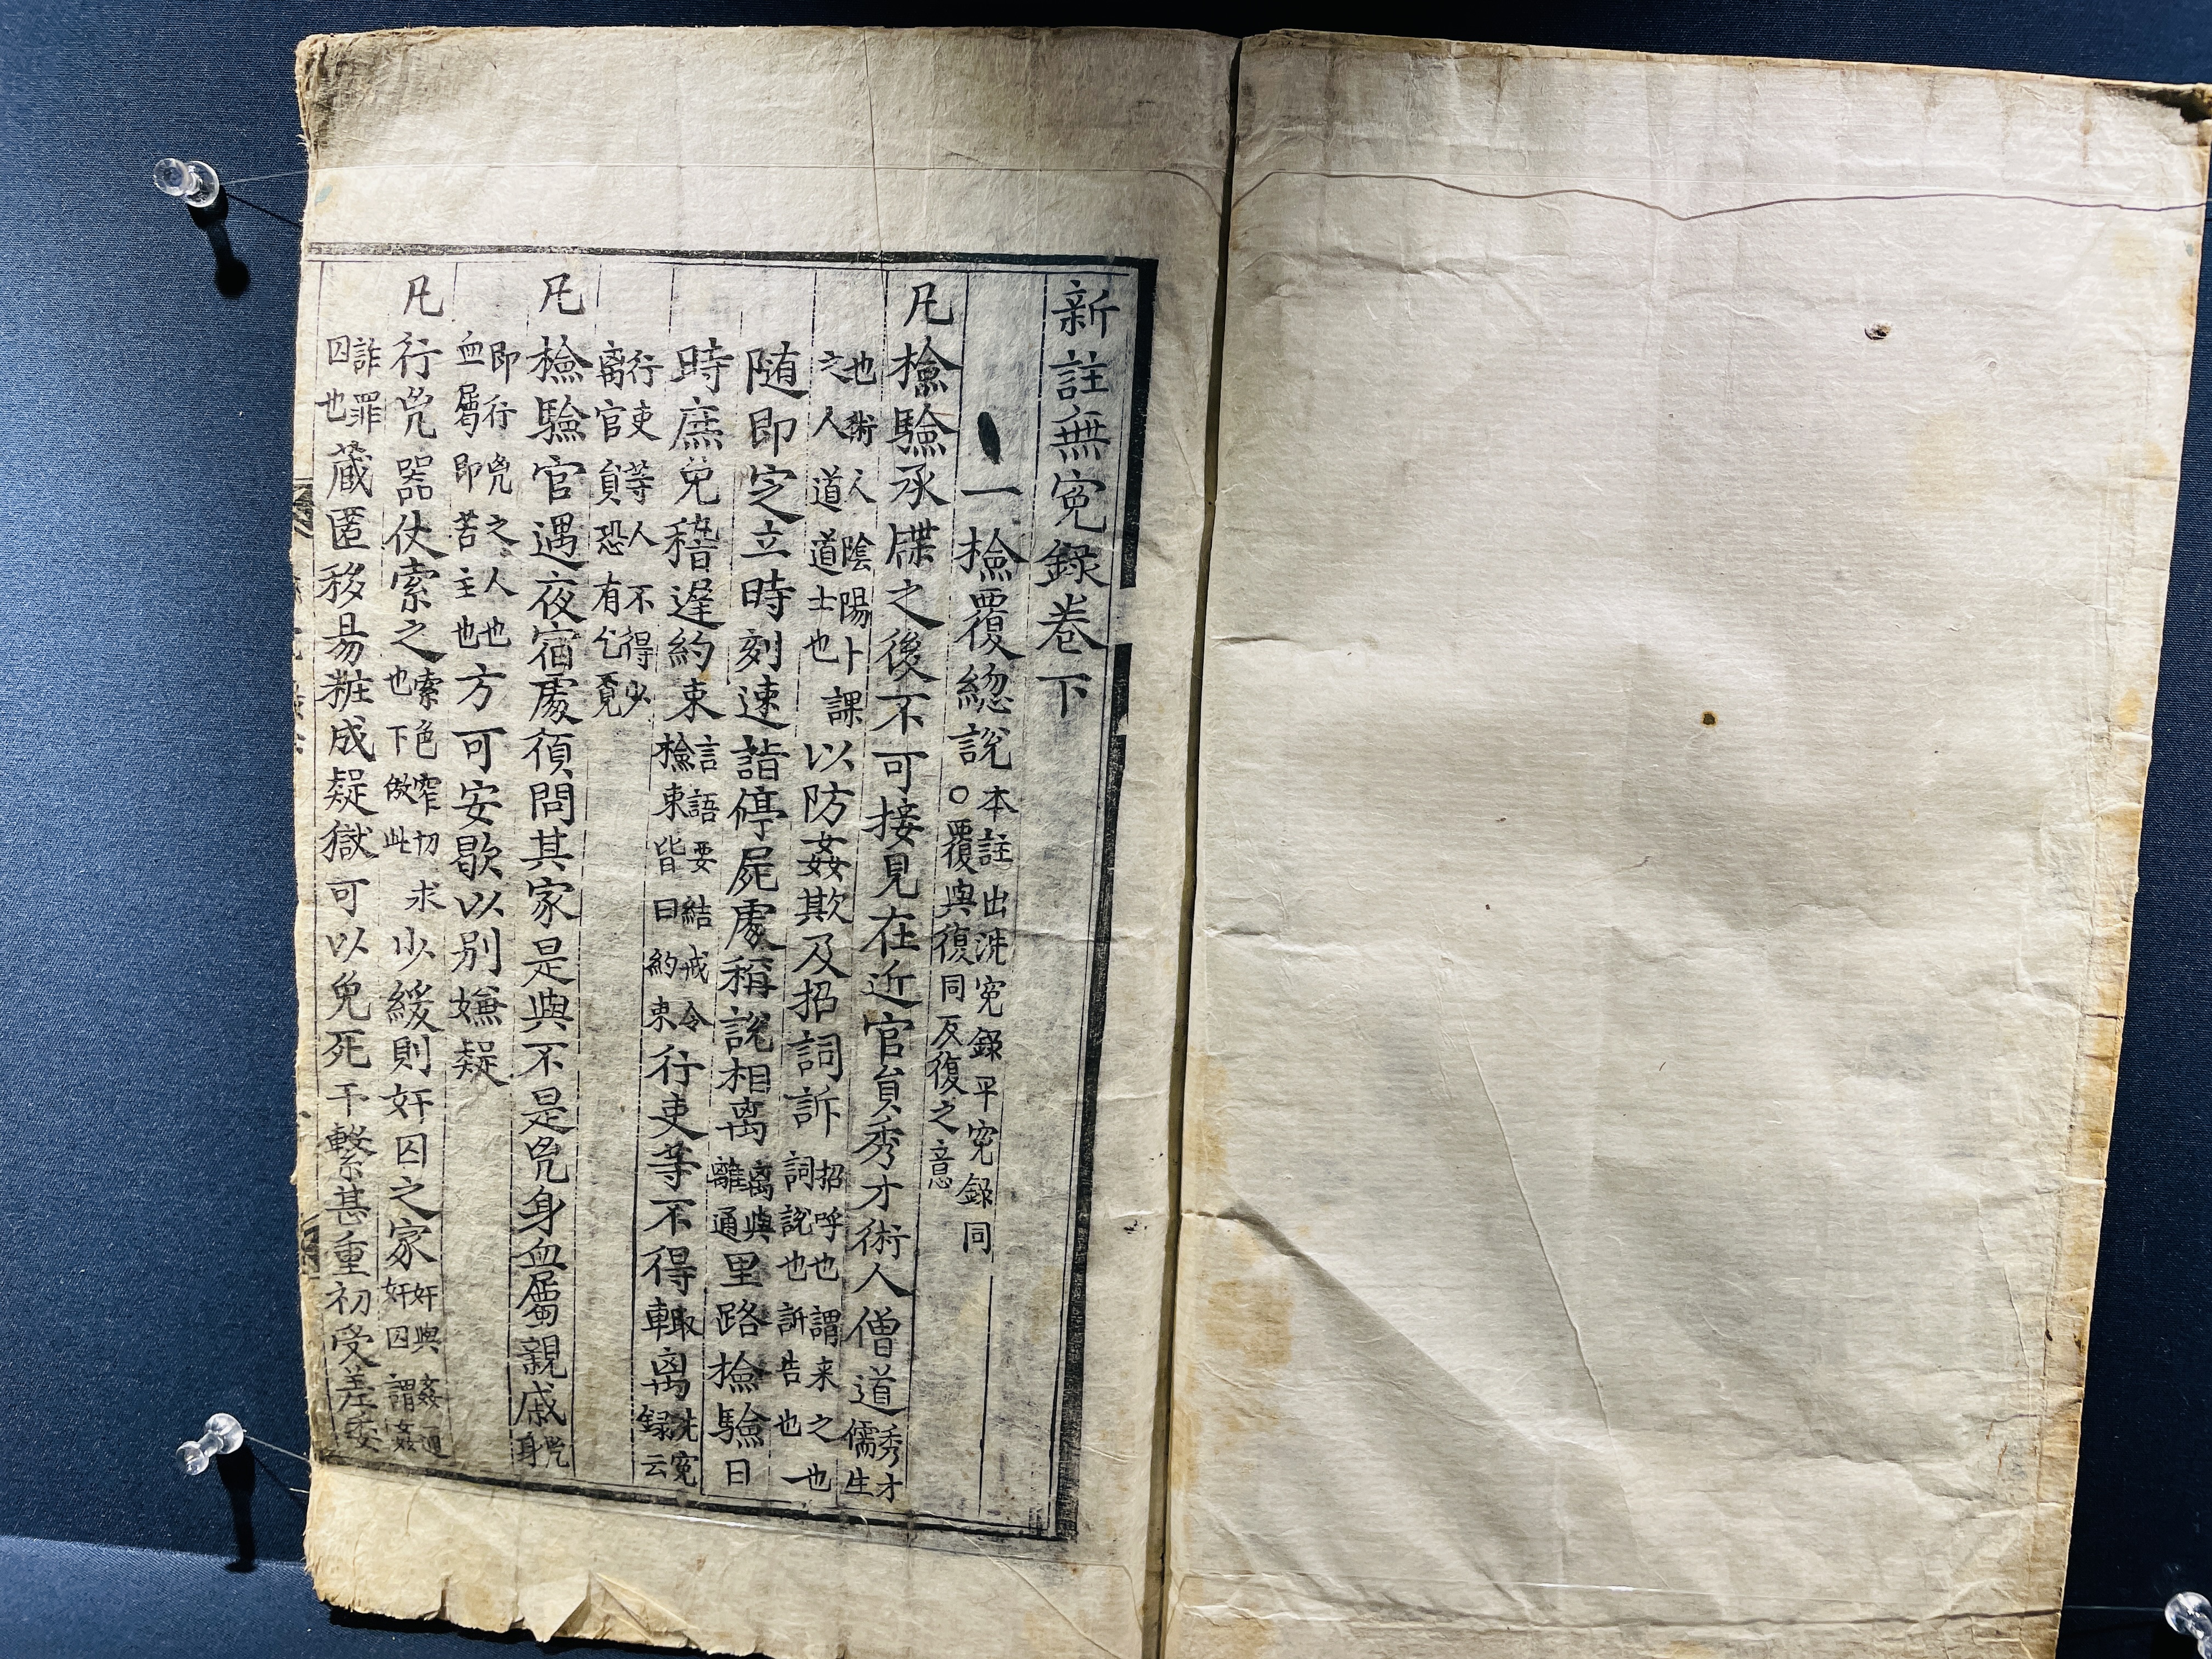 新註無寃録卷下
一檢覆緫說 本註出洗寃録平寃録同
○覆與復同反復之意
凡檢驗承牒之後不可接見在近官員秀才術人僧道 秀才
儒生
也術人陰陽卜課
之人道道士也 以防姦欺及招詞訴 招呼也謂来之也
詞說也訴告也一
随即定立時刻速詣停屍處稱說相离 离與
離通 里路檢驗日
時庶免稽遲約束 言語要結戒令
檢束皆曰約束 行吏等不得輙离 洗寃
録云
行吏等人不得少
离官員恐有乞覓
凡檢驗官遇夜宿處湏問其家是與不是兇身血屬親戚 兇
身
即行兇之人也
血屬即苦主也 方可安歇以别嫌疑
凡行兇器仗索之 索色窄切求
也下倣此 少緩則奸囚之家 奸與姦通
奸囚謂姦
詐罪
囚也 藏匿移易粧成疑獄可以免死干繫甚重初受差委